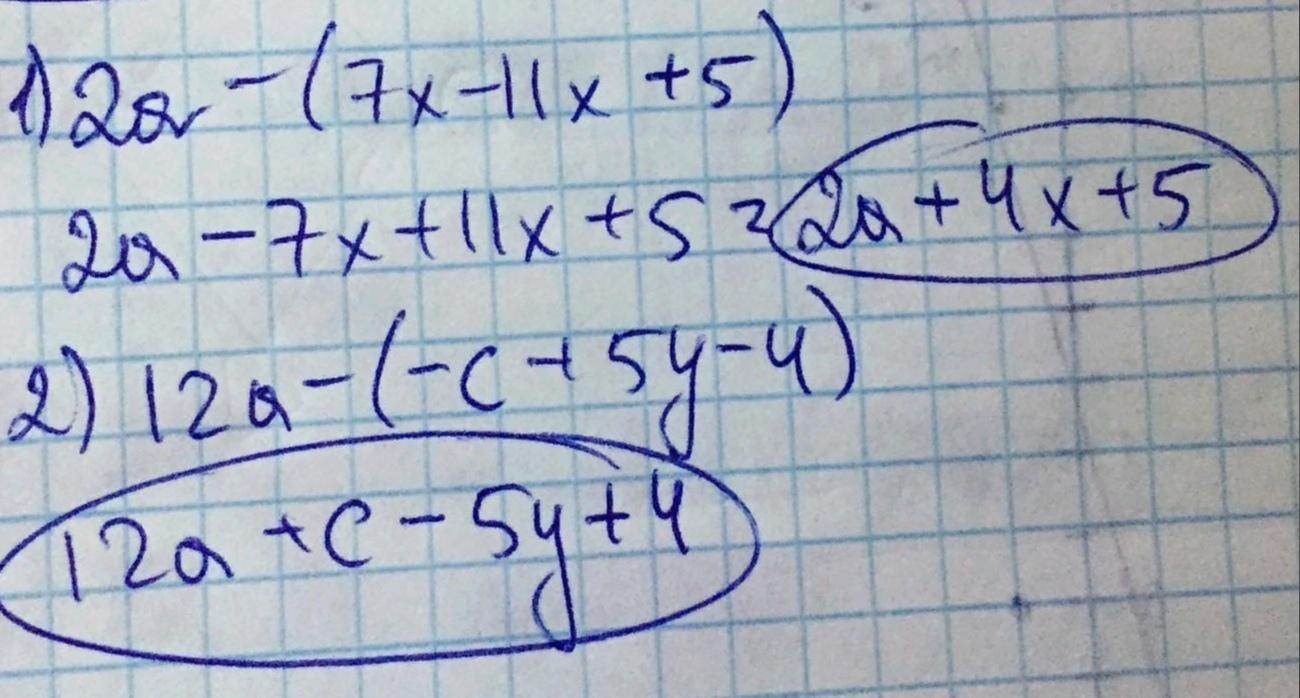 1) 2a - (7x - 11x + 5)
2a - 7x + 11x + 5 = 2a + 4x + 5
2) 12a - (-c + 5y - 4)
12a + c - 5y + 4